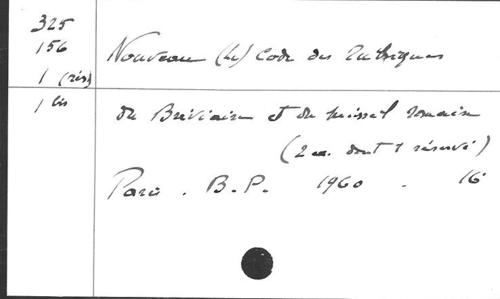 325
156
1 (rés)
1 bis
Nouveau (Le) Code des Rubriques
du Bréviaire et du missel romain
(2 ex. dont 1 réservé)
Paris. B.P. 1960. 16°